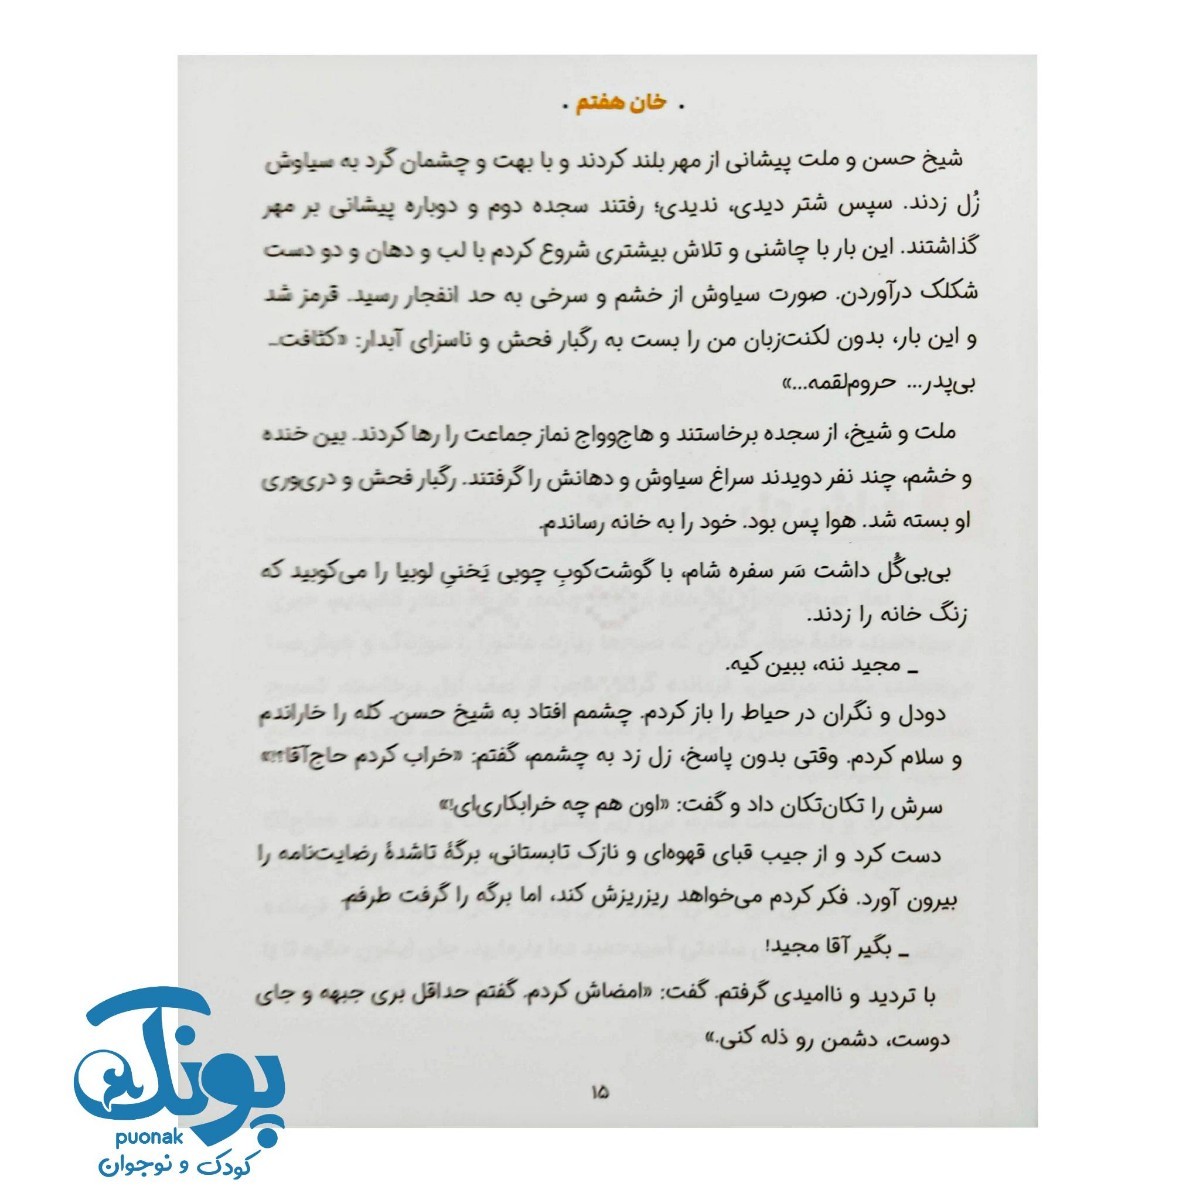 . خان هفتم .
شیخ حسن و ملت پیشانی از مهر بلند کردند و با بهت و چشمان گرد به سیاوش
زُل زدند. سپس شتر دیدی، ندیدی؛ رفتند سجده دوم و دوباره پیشانی بر مهر
گذاشتند. این بار با چاشنی و تلاش بیشتری شروع کردم با لب و دهان و دو دست
شکلک درآوردن. صورت سیاوش از خشم و سرخی به حد انفجار رسید. قرمز شد
و این بار، بدون لکنت‌زبان من را بست به رگبار فحش و ناسزای آبدار: «کثافت...
بی‌پدر... حروم‌لقمه...»
ملت و شیخ، از سجده برخاستند و هاج‌وواج نماز جماعت را رها کردند. بین خنده
و خشم، چند نفر دویدند سراغ سیاوش و دهانش را گرفتند. رگبار فحش و دری‌وری
او بسته شد. هوا پس بود. خود را به خانه رساندم.
بی‌بی‌گُل داشت سَر سفره شام، با گوشت‌کوبِ چوبی یَخنیِ لوبیا را می‌کوبید که
زنگ خانه را زدند.
_ مجید ننه، ببین کیه.
دودل و نگران در حیاط را باز کردم. چشمم افتاد به شیخ حسن. کله را خاراندم
و سلام کردم. وقتی بدون پاسخ، زل زد به چشمم، گفتم: «خراب کردم حاج‌آقا؟!»
سرش را تکان‌تکان داد و گفت: «اون هم چه خرابکاری‌ای!»
دست کرد و از جیب قبای قهوه‌ای و نازک تابستانی، برگهٔ تاشدهٔ رضایت‌نامه را
بیرون آورد. فکر کردم می‌خواهد ریزریزش کند، اما برگه را گرفت طرفم.
_ بگیر آقا مجید!
با تردید و ناامیدی گرفتم. گفت: «امضاش کردم. گفتم حداقل بری جبهه و جای
دوست، دشمن رو ذله کنی.»
۱۵
پونک
puonak
کودک و نوجوان